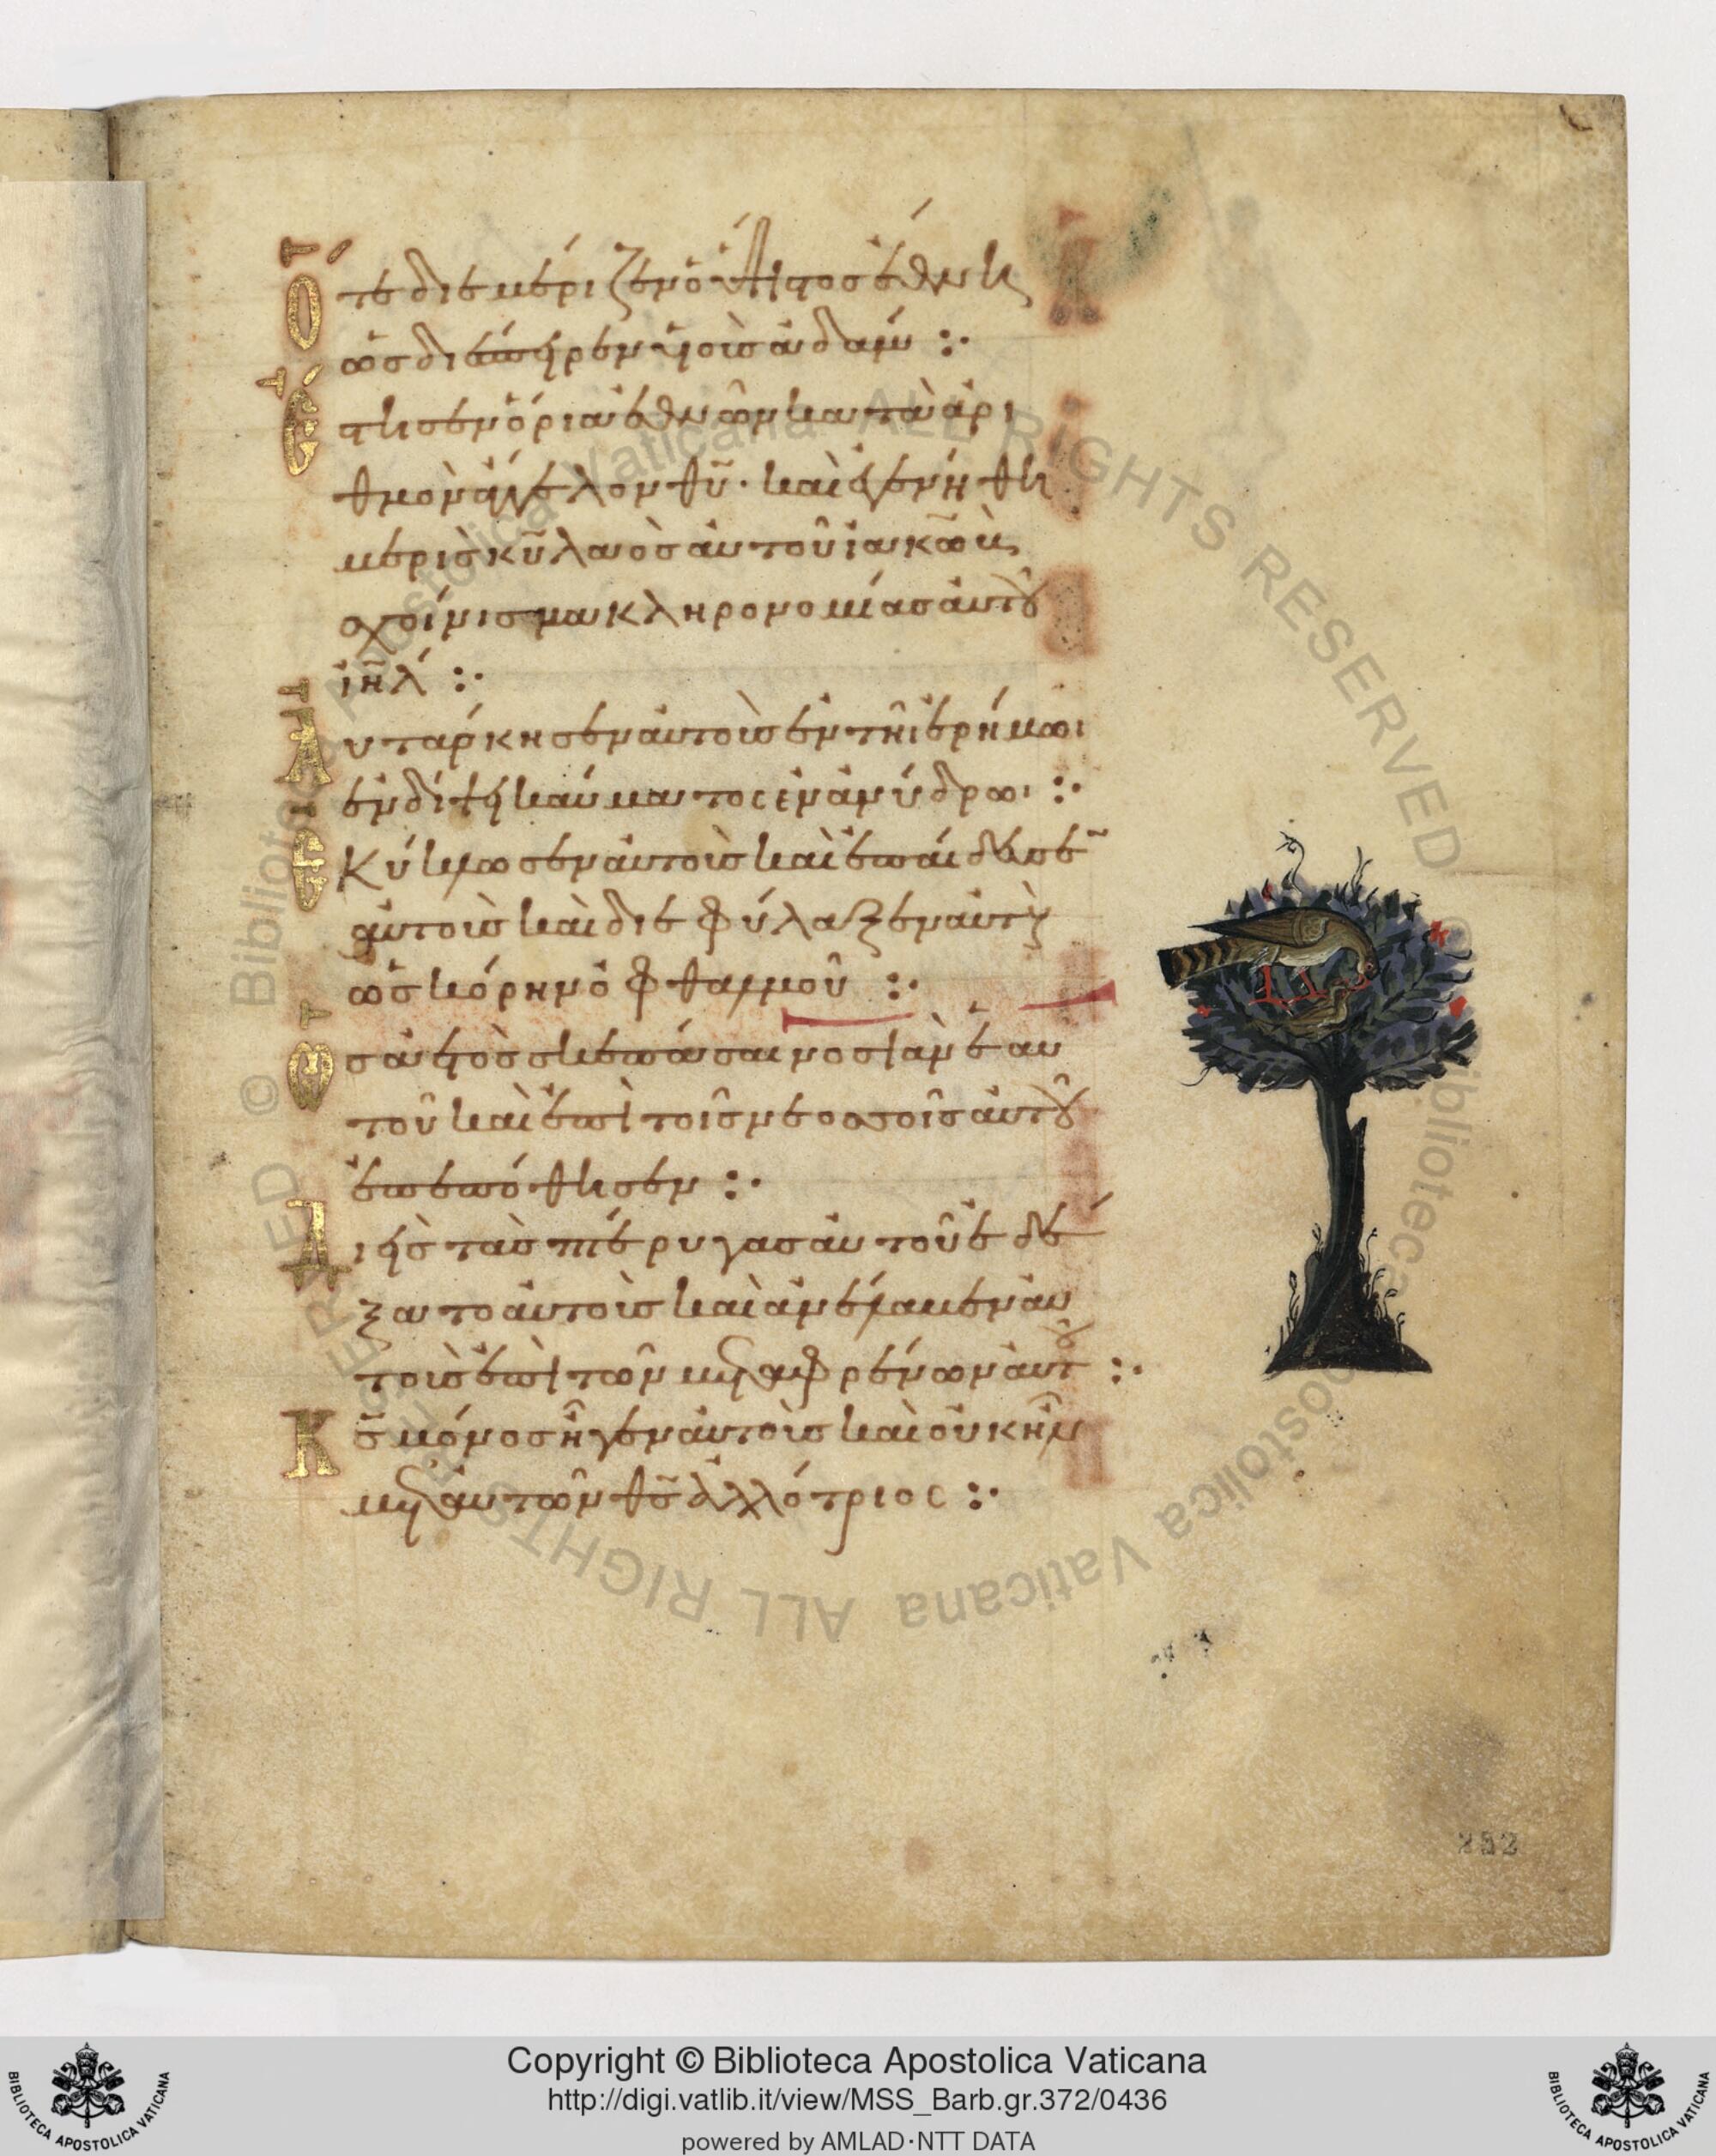 Ὅτε διεμέριζεν ὁ ὕψιστος ἔθνη
ὡς διέσπειρεν υἱοὺς ἀδάμ :·
Ἔστησεν ὅρια ἐθνῶν κατὰ ἀρι
θμὸν ἀγγέλων θυ̅· καὶ ἐγενήθη
μερὶς κυ̅ λαὸς αὐτοῦ ἰακὼβ
σχοίνισμα κληρονομίας αὐτοῦ
ιη̅λ :·
Αὐτάρκησεν αὐτοὺς ἐν τῆι ἐρήμωι
ἐν δίψει καύματος ἐν ἀνύδρωι :·
Ἐκύκλωσεν αὐτοὺς καὶ ἐπαίδευσε̅
αὐτοὺς καὶ διεφύλαξεν αὐτοὺς
ὡς κόρην ὀφθαλμοῦ :·
Ὡς ἀετὸς σκεπάσαι νοσσιὰν ἑαυ
τοῦ καὶ ἐπὶ τοῖς νεοσσοῖς αὐτοῦ
ἐπεπόθησεν :·
Διεὶς τὰς πτέρυγας αὐτοῦ ἐδέ
ξατο αὐτοὺς καὶ ἀνέλαβεν αὐ
τοὺς ἐπὶ τῶν μεταφρένων αὐτοῦ :·
Κς̅ μόνος ἦγεν αὐτοὺς καὶ οὐκ ἦν
μετ αὐτῶν θς̅ ἀλλότριος :·
252
© Biblioteca Apostolica Vaticana ALL RIGHTS RESERVED © Biblioteca Apostolica Vaticana ALL RIGHTS RESERVED
BIBLIOTECA APOSTOLICA VATICANA
Copyright © Biblioteca Apostolica Vaticana
http://digi.vatlib.it/view/MSS_Barb.gr.372/0436
powered by AMLAD·NTT DATA
BIBLIOTECA APOSTOLICA VATICANA